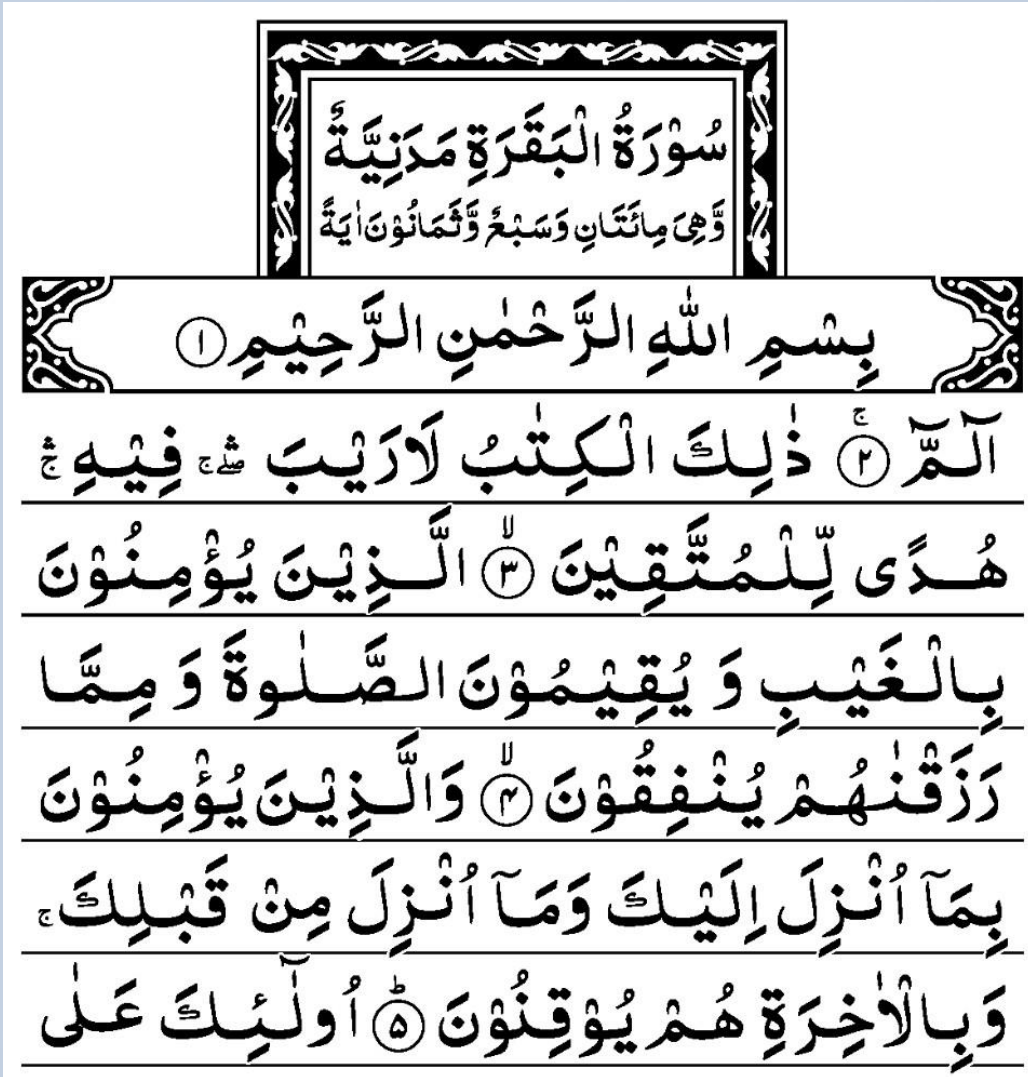 سُوْرَةُ الْبَقَرَةِ مَدَنِيَّةٌ
وَّهِيَ مِائَتَانِ وَسَبْعٌ وَّثَمَانُوْنَ اٰيَةً
بِسْمِ اللّٰهِ الرَّحْمٰنِ الرَّحِيْمِ ۝١
الٓمّٓ ۝٢ۚ ذٰلِكَ الْكِتٰبُ لَارَيْبَ ۛۖۚ فِيْهِ ۛۚ
هُدًى لِّلْمُتَّقِيْنَ ۝٣ۙ الَّذِيْنَ يُؤْمِنُوْنَ
بِالْغَيْبِ وَ يُقِيْمُوْنَ الصَّلٰوةَ وَ مِمَّا
رَزَقْنٰهُمْ يُنْفِقُوْنَ ۝۴ۙ وَالَّذِيْنَ يُؤْمِنُوْنَ
بِمَآ اُنْزِلَ اِلَيْكَ وَمَآ اُنْزِلَ مِنْ قَبْلِكَ ۚ
وَبِالْاٰخِرَةِ هُمْ يُوْقِنُوْنَ ۝۵ؕ اُولٰٓئِكَ عَلٰى